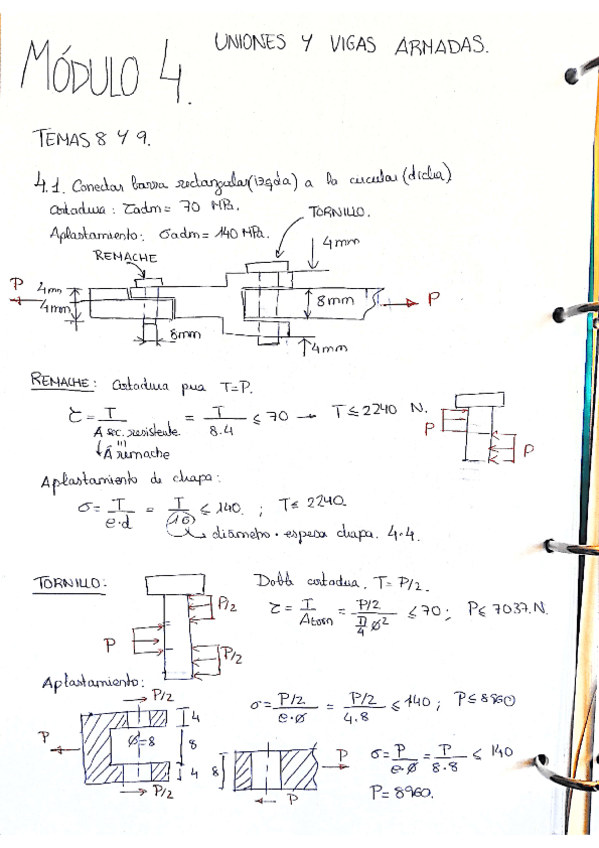 UNIONES Y VIGAS ARMADAS.
MÓDULO 4.
TEMAS 8 Y 9.
4.1. Conectar barra rectangular (izqda) a la circular (dcha)
Cortadura: τadm = 70 MPa.
TORNILLO.
Aplastamiento: σadm = 140 MPa.
4mm
REMACHE
P
4mm
4mm
8mm
P
8mm
4mm
REMACHE: Cortadura pura T=P.
τ = T / A sec. resistente = T / 8.4 ≤ 70 → T ≤ 2240 N.
A remache
P
P
Aplastamiento de chapa:
σ = T / e·d = T / 16 ≤ 140. ; T ≤ 2240.
diámetro · espesor chapa. 4·4.
TORNILLO:
Doble cortadura. T = P/2.
P/2
τ = T / Atorn = P/2 / π/4 ø² ≤ 70 ; P ≤ 7037 N.
P
P/2
Aplastamiento:
P/2
σ = P/2 / e·ø = P/2 / 4.8 ≤ 140 ; P ≤ 8960
4
P
ø=8
8
4
P/2
8
P
P
σ = P / e·ø = P / 8·8 ≤ 140
P = 8960.